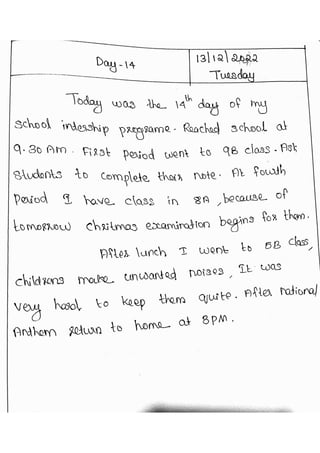 Day-14
13/12/2022
Tuesday
Today was the 14th day of my
school intership programe. Reached school at
9.30 AM. First period went to 9B class. Ask
students to complete there note. At fourth
period I have class in 8A, because of
tomorrow christmas examination begins for them.
After lunch I went to 5B class,
childrens make unwanted noises, It was
very hard to keep them quite. After national
Anthem return to home at 3PM.